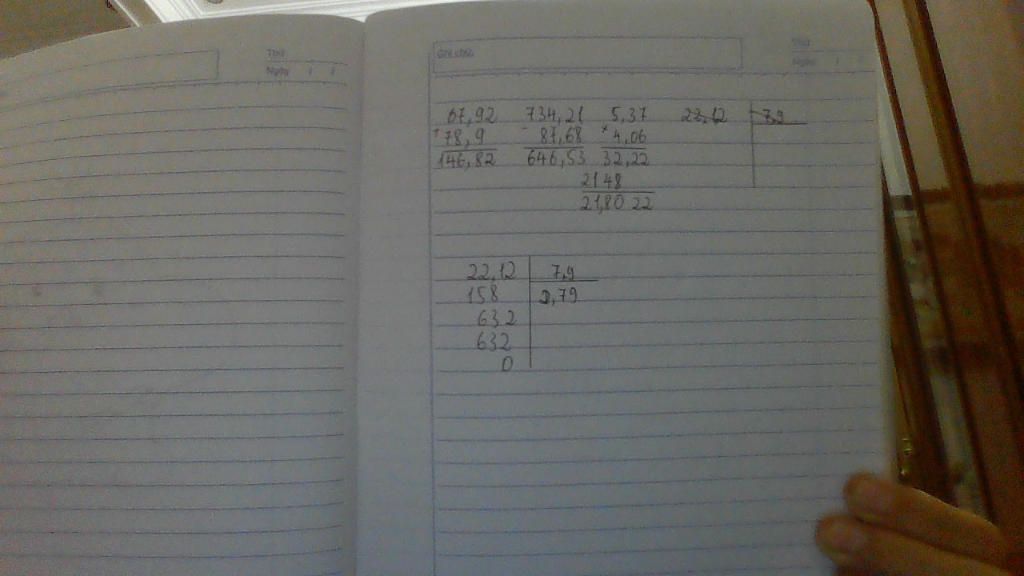 Thứ
Ngày / /
Ghi chú:
Thứ
Ngày / /
67,92 734,21 5,37 22,12 7,9
+ 78,9 - 87,68 x 4,06
146,82 646,53 32,22
2148
21,80 22
22,12 7,9
158 2,79
632
632
0